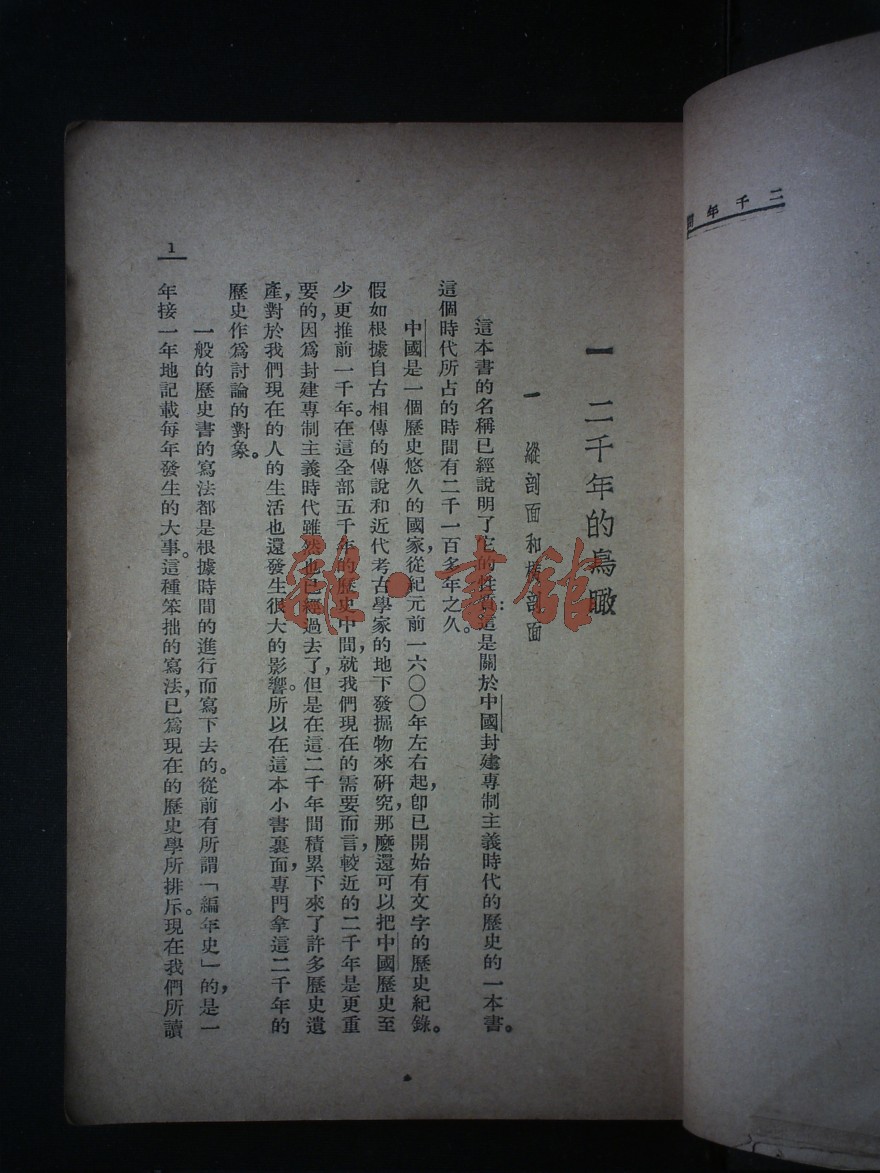 二千年間
一 二千年的鳥瞰
一 縱剖面和橫剖面
這本書的名稱已經說明了它的性質:這是關於中國封建專制主義時代的歷史的一本書。
這個時代所占的時間有二千一百多年之久。
中國是一個歷史悠久的國家,從紀元前一六〇〇年左右起,卽已開始有文字的歷史紀錄。
假如根據自古相傳的傳說和近代考古學家的地下發掘物來研究,那麼還可以把中國歷史至
少更推前一千年。在這全部五千年的歷史中間,就我們現在的需要而言,較近的二千年是更重
要的,因爲封建專制主義時代雖然也已經過去了,但是在這二千年間積累下來了許多歷史遺
產,對於我們現在的人的生活也還發生很大的影響。所以在這本小書裏面,專門拿這二千年的
歷史作爲討論的對象。
一般的歷史書的寫法都是根據時間的進行而寫下去的。從前有所謂「編年史」的,是一
年接一年地記載每年發生的大事。這種笨拙的寫法,已爲現在的歷史學所排斥。現在我們所讀
1
雜·書館